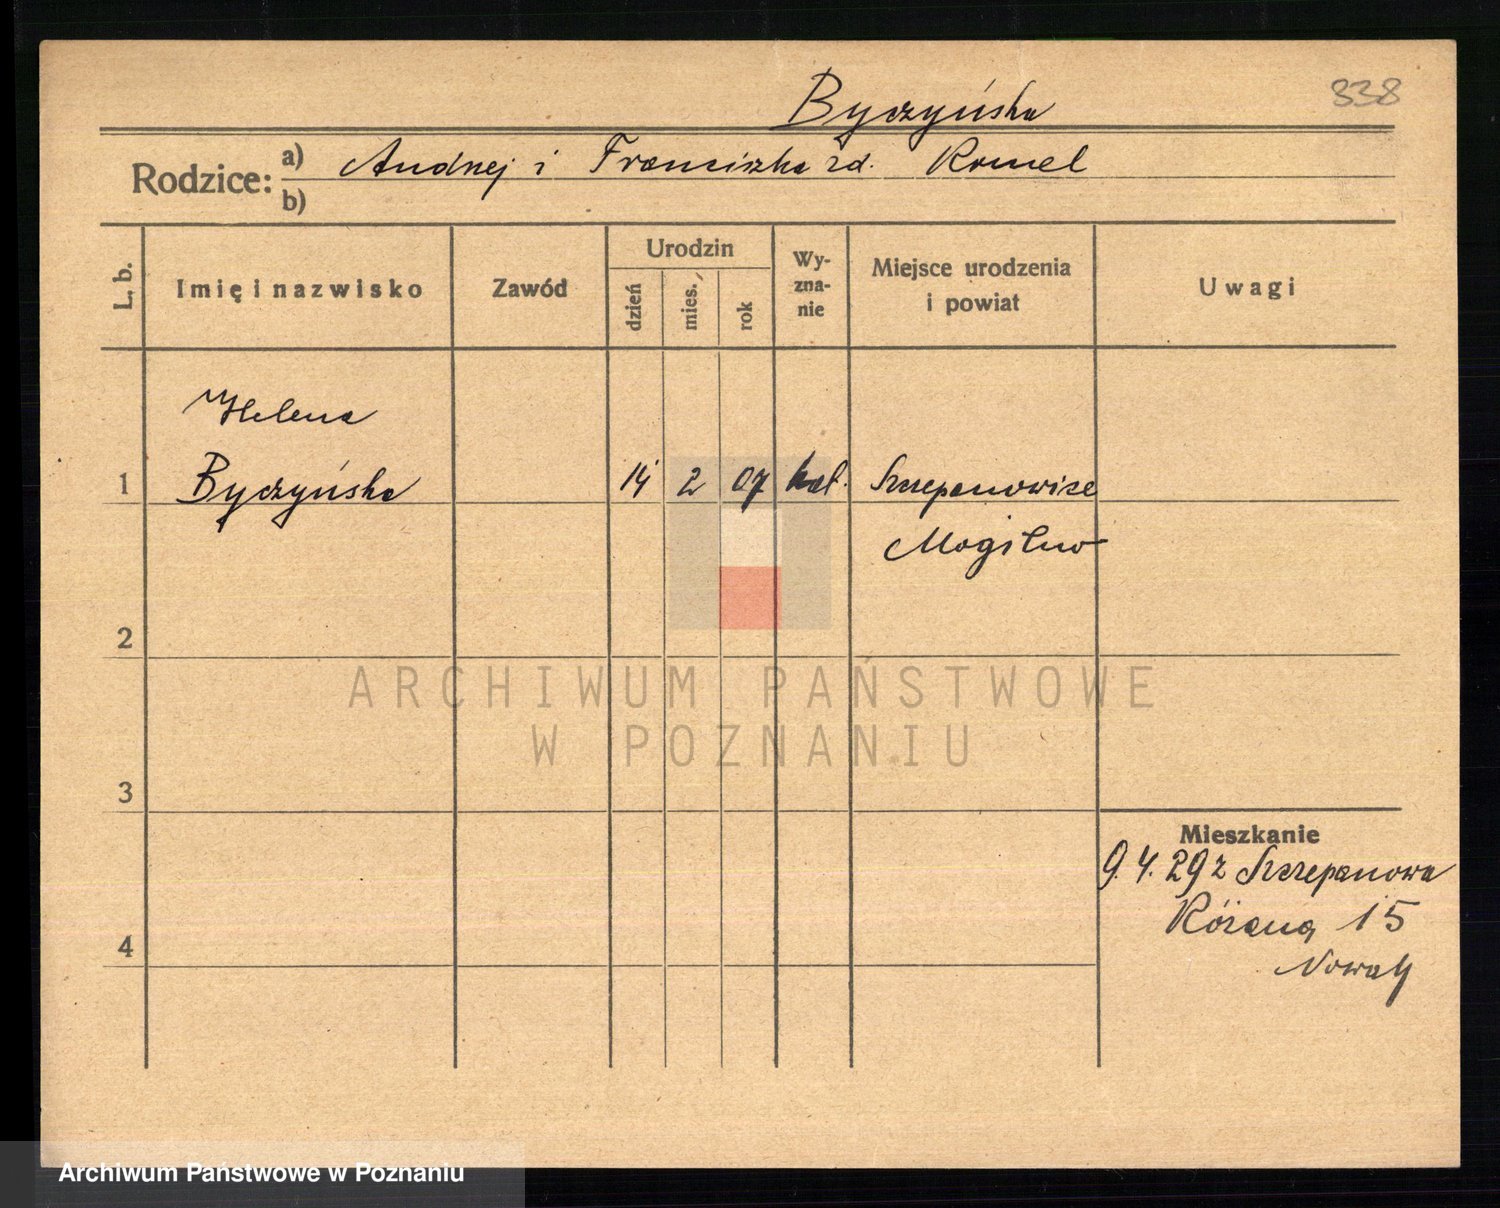 Byczyńska
338
Rodzice: a) Andrzej i Franciszka zd. Kornel
b)
L. b.
Imię i nazwisko
Zawód
Urodzin
dzień
mies.
rok
Wy-
zna-
nie
Miejsce urodzenia
i powiat
Uwagi
Helena
1 Byczyńska 14 2 07 kat. Szczepanowice
Mogilno
2
ARCHIWUM PAŃSTWOWE
W POZNANIU
3
Mieszkanie
9.4.29 z Szczepanowa
Różana 15
4
Nowak
Archiwum Państwowe w Poznaniu